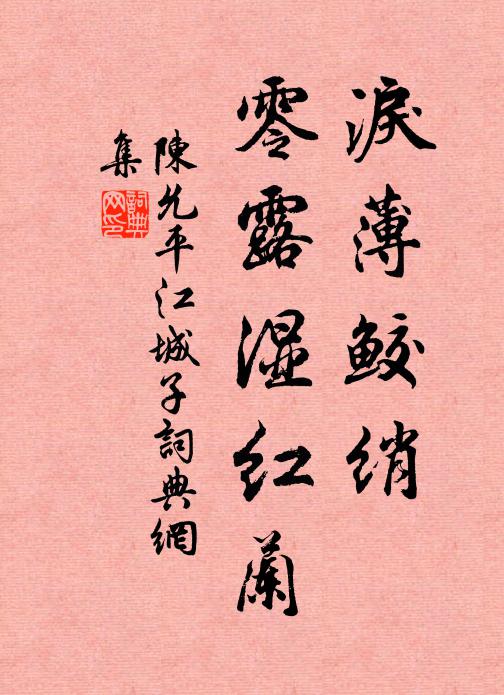 淚薄鮫綃
零露濕紅蘭
陳允平江城子詞典網
集
詞典網印